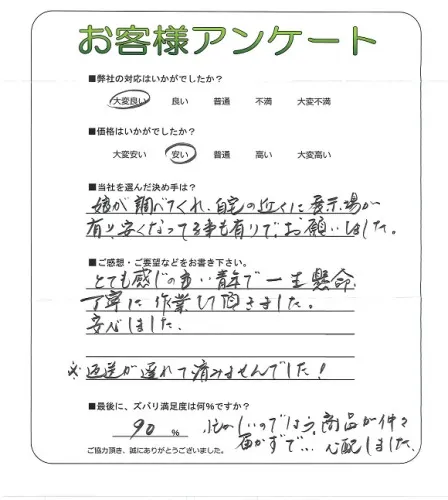 お客様アンケート
■弊社の対応はいかがでしたか?
大変良い 良い 普通 不満 大変不満
■価格はいかがでしたか?
大変安い 安い 普通 高い 大変高い
■当社を選んだ決め手は?
娘が調べてくれ、自宅の近くに展示場が
有り安くなってる事も有りで、お願いしました。
■ご感想・ご要望などをお書き下さい。
とても感じの良い青年で一生懸命、
丁寧に作業して頂きました。
安心しました。
※返送が遅れて済みませんでした!
■最後に、ズバリ満足度は何%ですか?
90 %
忙しいのでしょう、商品が仲々
届かずで… 心配しました。
ご協力頂き、誠にありがとうございました。